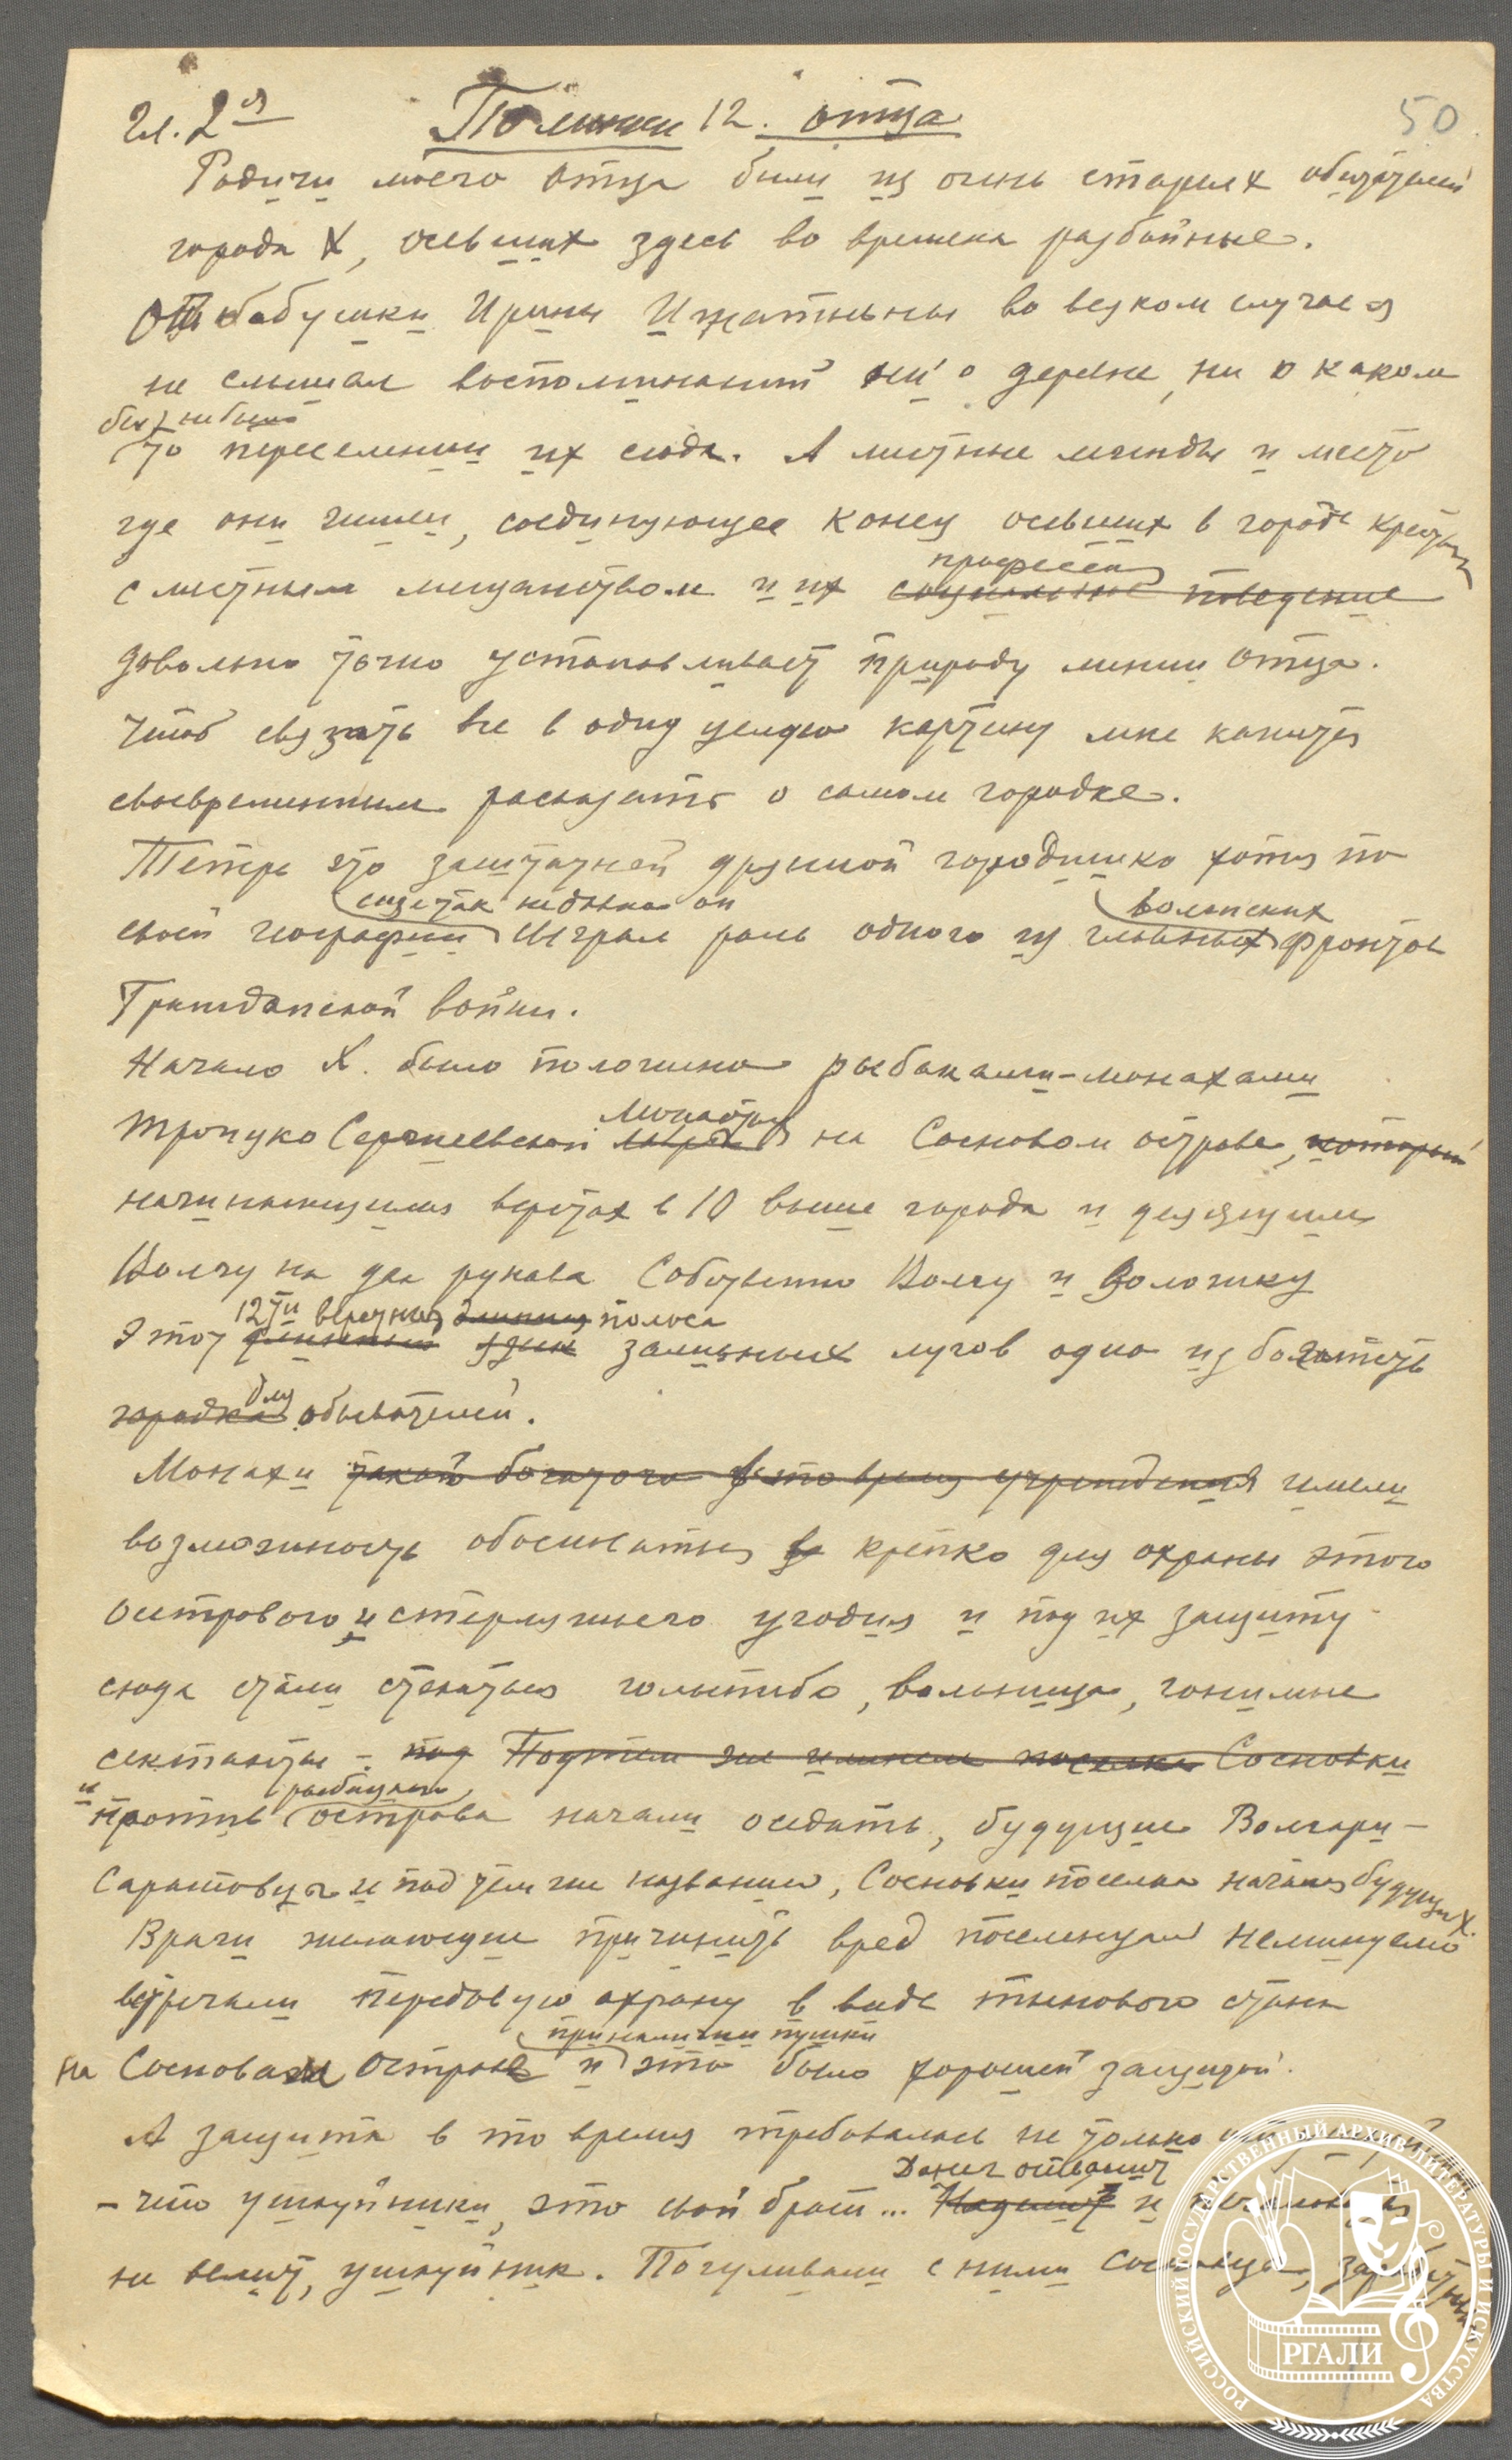 Гл. 2ая 12. отца 50
Родичи моего отца были из очень старых обитателей
города Х, осевших здесь во времена разбойные.
От бабушки Ирины Игнатьевны во всяком случае я
не слышал воспоминаний ни о деревне, ни о каком
бы ни было
то переселении их сюда. А местные легенды и место
где они жили, соединяющее конец осевших в городе крестьян
профессия
с местным мещанством и их социальное поведение
довольно точно устанавливает природу линии отца.
Чтоб связать все в одну целую картину мне кажется
своевременным рассказать о самом городке.
Теперь это заштатный дрянной городишко хотя по
еще так недавно он волжских
своей географии сыграл роль одного из главных фронтов
Гражданской войны.
Начало Х. было положено рыбаками-монахами
Монастыря
Троицко Сергиевской лавры на Сосновом острове, который
начинающимся верстах в 10 выше города и делящим
Волгу на два рукава Собственно Волгу и Воложку
12ти верстная длинная полоса
Этот длинный язык заливных лугов одно из богатств
для
городка обывателей.
Монахи такого богатого в то время учреждения имели
возможность обосноваться крепко для охраны этого
островного и стерляжьего угодия и под их защиту
сюда стали стекаться голытьба, вольница, гонимые
сектанты - под Под тем же именем поселка Сосновки
и рыбацкого
против острова начали оседать, будущие Волгари-
Саратовцы и под тем же названием, Сосновки поселка начало будущих Х.
Враги желающие причинить вред поселенцам неминуемо
встречали передовую охрану в виде тынового стана
при наличии пушки
на Сосновом острове и это было хорошей защитой.
А защита в то время требовалась не только от
Донег оставит
- что ушкуйники, это свой брат... и
не велит, ушкуйник. Погуливали с ними Сосновцы,
РОССИЙСКИЙ ГОСУДАРСТВЕННЫЙ АРХИВ ЛИТЕРАТУРЫ И ИСКУССТВА
РГАЛИ